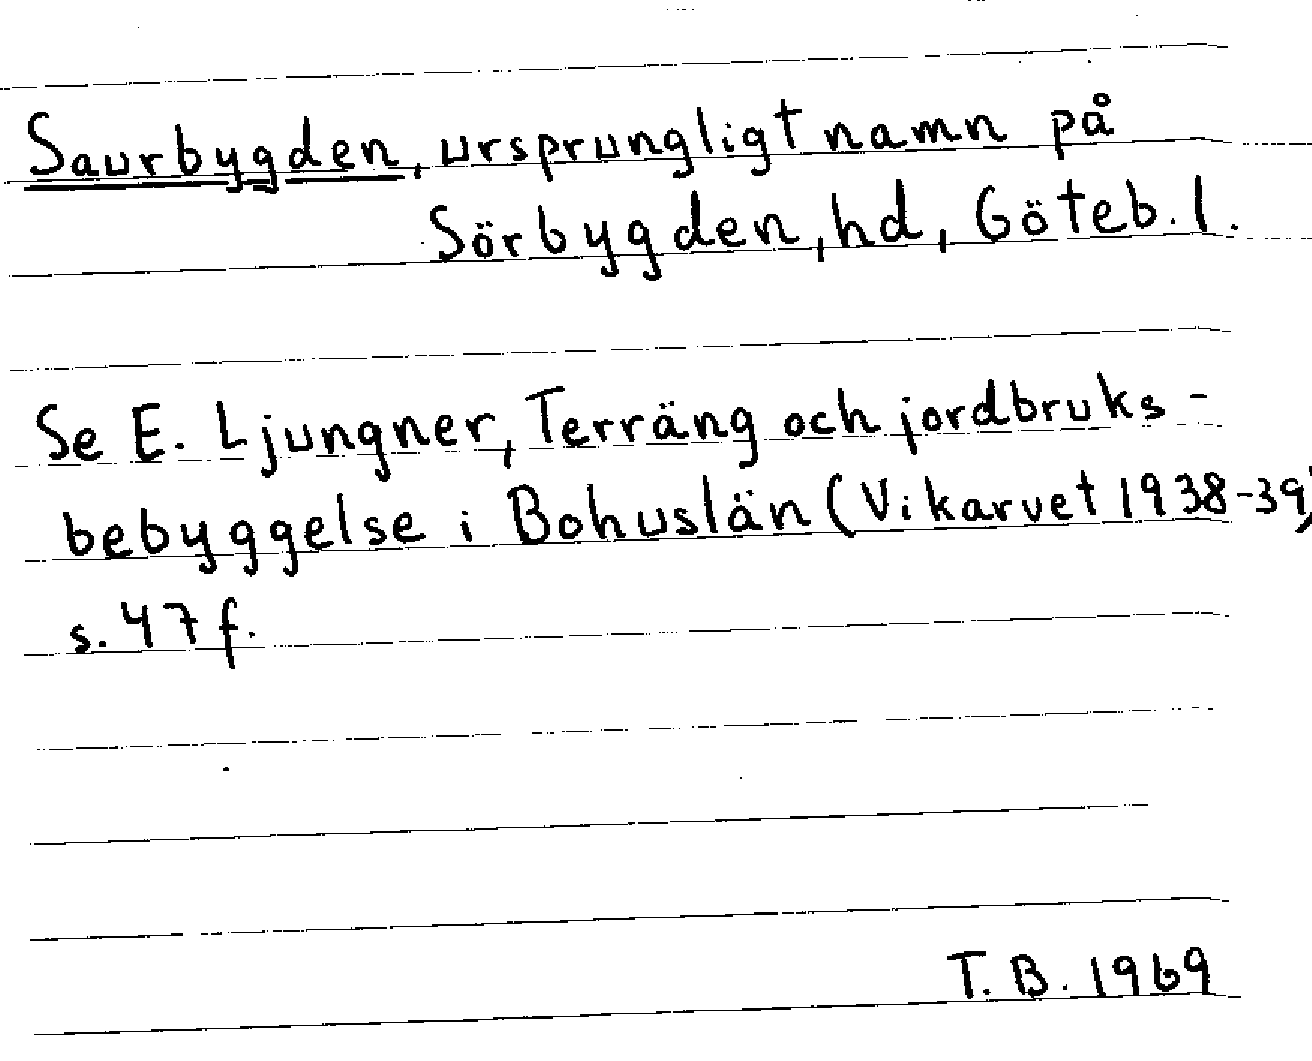 Saurbygden, ursprungligt namn på
Sörbygden, hd, Göteb. l.
Se E. Ljungner, Terräng och jordbruks-
bebyggelse i Bohuslän (Vikarvet 1938-39)
s. 47 f.
T. B. 1969